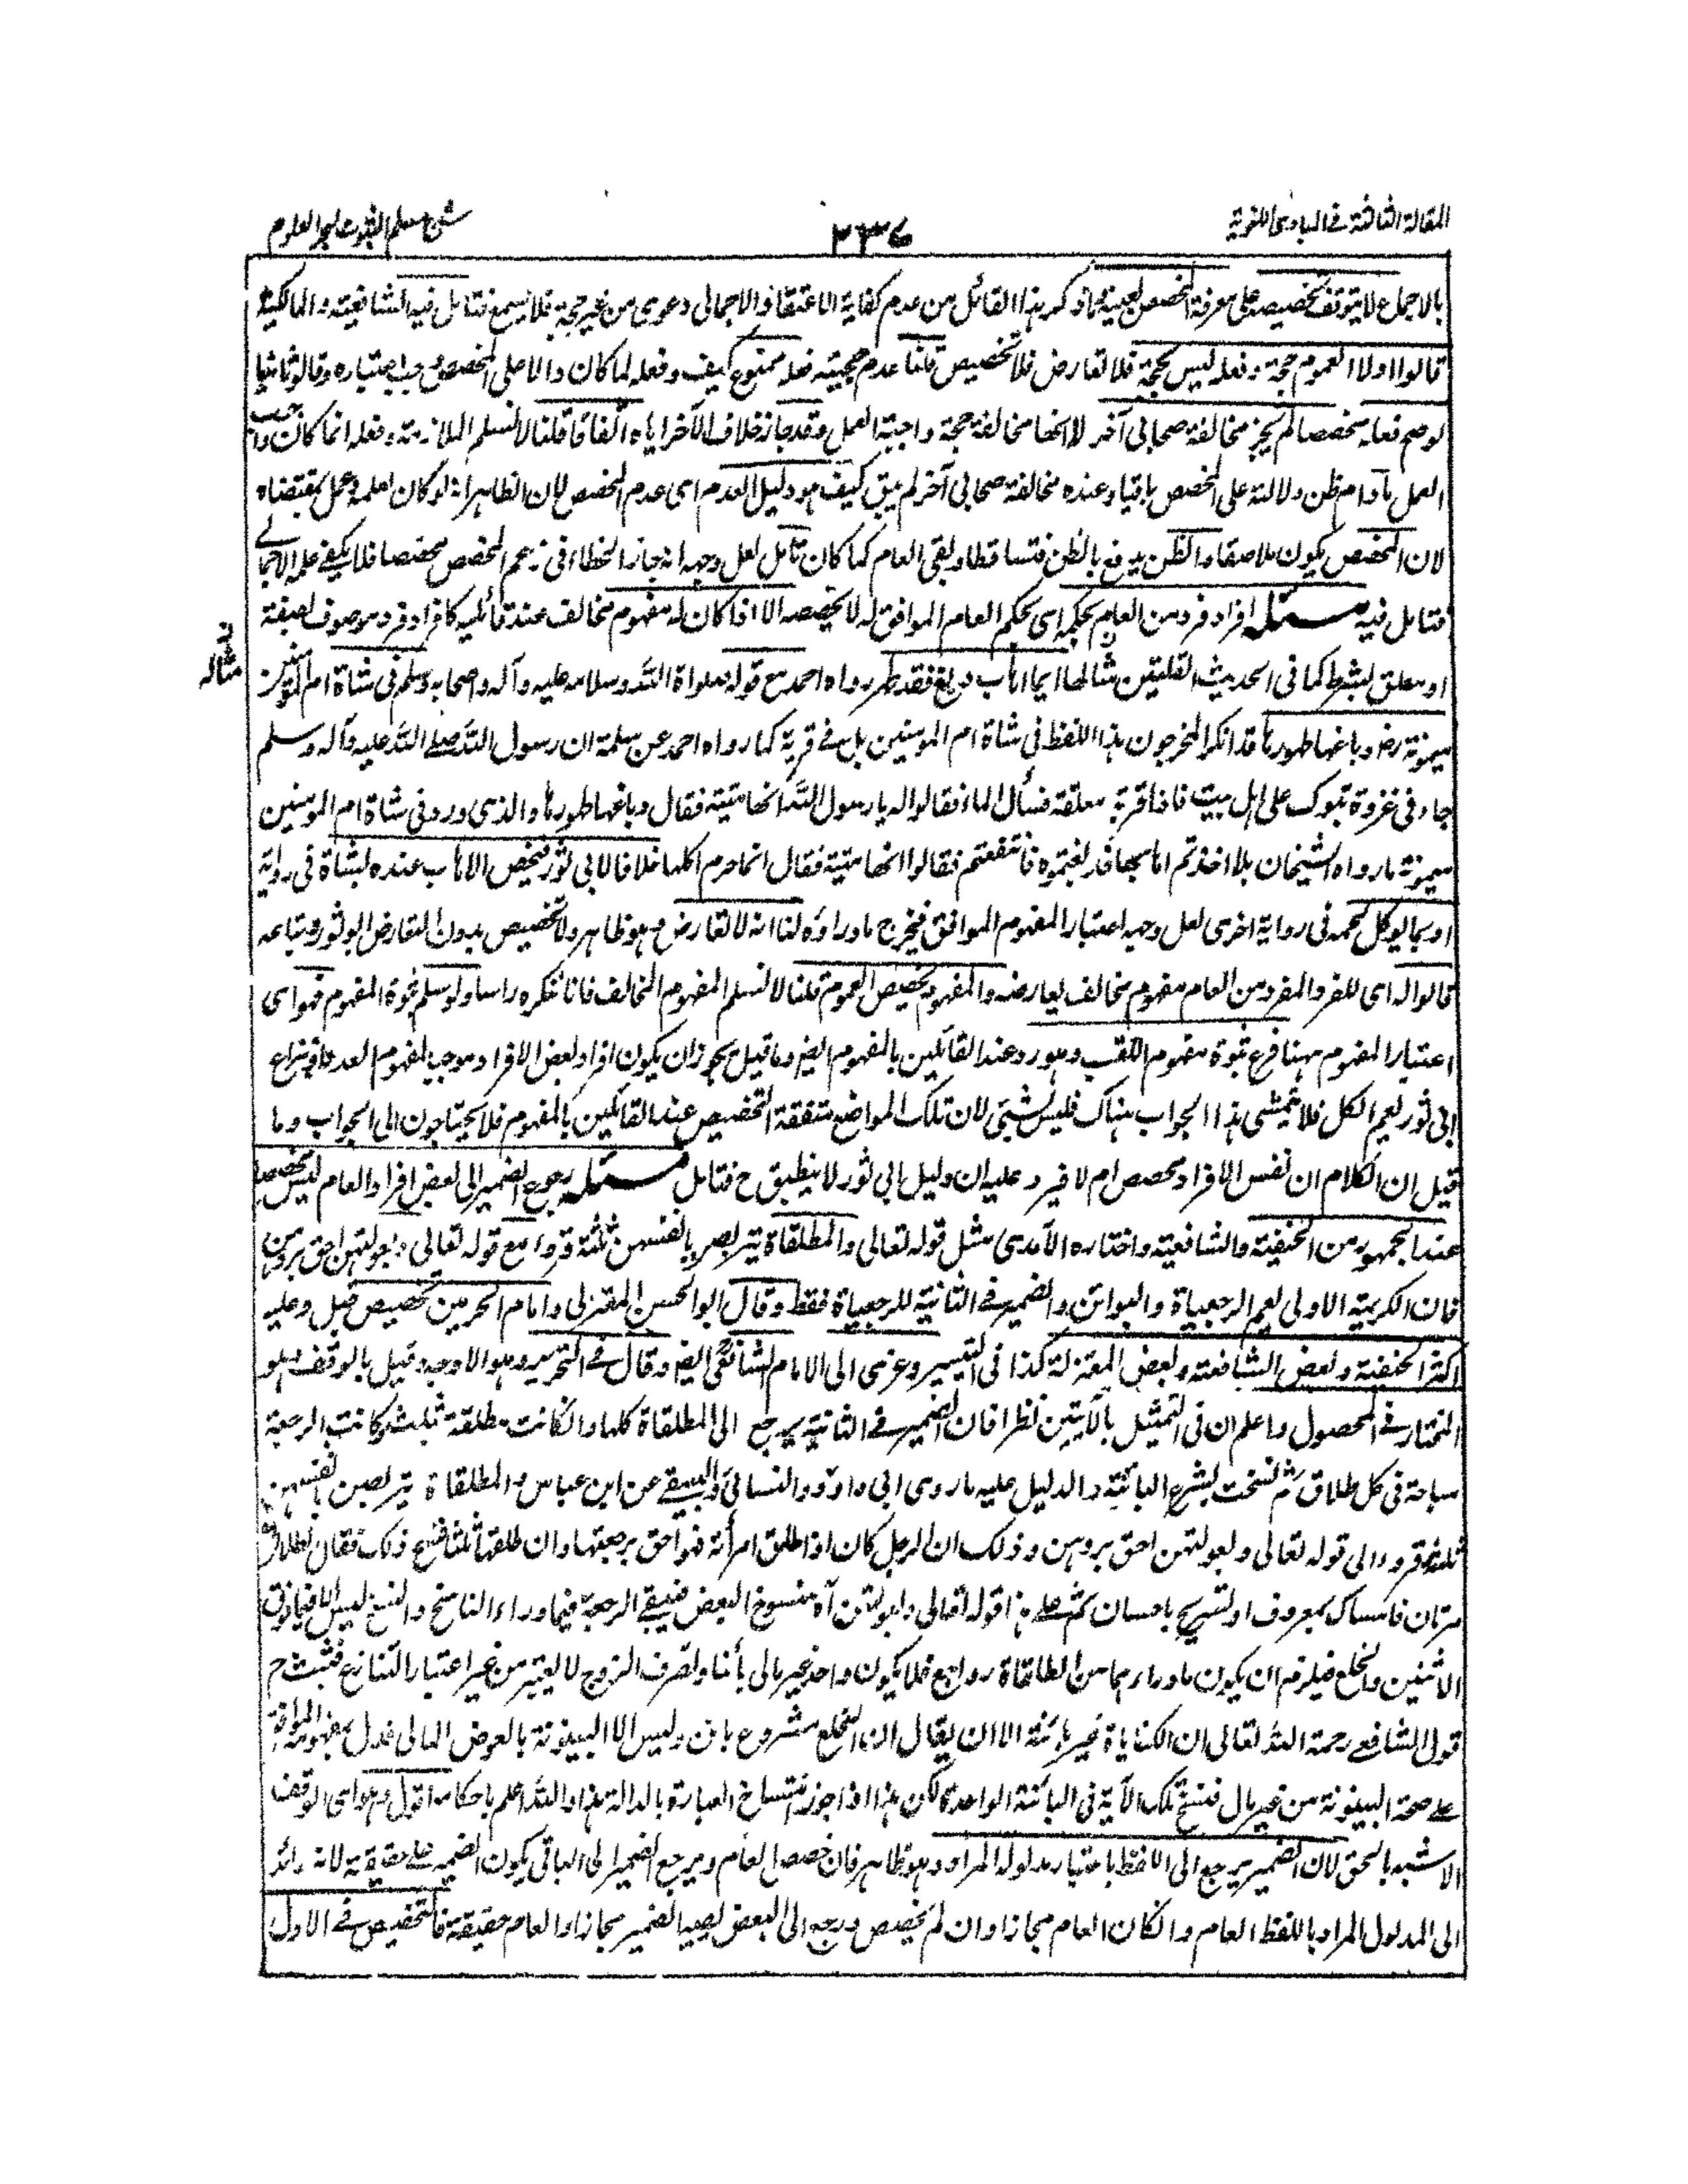 المقالة الثالثة في المبادي اللغوية
٢٣٧
شرح مسلم الثبوت لبحر العلوم
بالاجماع لا يتوقف تخصيصه على معرفة المخصص بعينه وما ذكر هذا القائل من عدم كفاية الاعتقاد الاجمالي دعوى من غير حجة فلا يسمع فتامل فيه الشافعية والمالكية
قالوا اولا العموم حجة وفعله ليس بحجة فلا تعارض فلا تخصيص قلنا عدم حجية فعله ممنوع كيف وفعله لما كان دالا على المخصص وجب اعتباره وقالوا ثانيا
لو صح فعله مخصصا لم يجز مخالفة صحابي آخر لانها مخالفة حجة واجبة العمل وقد جاز خلاف الآخر اياه اتفاقا قلنا لا نسلم الملازمة وفعله انما كان واجب
العمل ما دام ظن دلالته على المخصص باقيا وعنده مخالفة صحابي آخر لم يبق كيف هو دليل العدم اى عدم المخصص لان الظاهر انه لو كان لعلمه وعمل بمقتضاه
لان المخصص يكون ملاصقا والظن يدفع بالظن فتساقطا وبقى العام كما كان تأمل لعل وجهه انه جاز الخطاء في زعم المخصص مخصصا فلا يكفي علمه الاجمالي
فتامل فيه مسئله افراد فرد من العام بحكمه اى بحكم العام الموافق له لا يخصصه الا اذا كان له مفهوم مخالف عند قائليه كافراد فرد موصوف بصفة
او معلق بشرط كما في الحديث القلتين مثالها ايما اهاب دبغ فقد طهر رواه احمد مع قوله صلواة الله وسلامه عليه وآله واصحابه وسلم في شاة ام المؤمنين
مثاله
ميمونة رض دباغها طهورها قد انكر المخرجون هذا اللفظ في شاة ام المومنين بل في قربة كما رواه احمد عن سلمة ان رسول الله صلى الله عليه وآله وسلم
جاء في غزوة تبوك على اهل بيت فاذا قربة معلقة فسأل الماء فقالوا له يا رسول الله انها ميتة فقال دباغها طهورها والذى ورد في شاة ام المومنين
ميمونة ما رواه الشيخان هلا اخذتم اهابها فدبغتموه فانتفعتم فقالوا انها ميتة فقال انما حرم اكلها خلافا لابي ثور فيخص الاهاب عنده بالشاة في رواية
او بما يوكل لحمه في رواية اخرى لعل وجهه اعتبار المفهوم الموافق فيخرج ما وراءه لنا انه لا تعارض وهو ظاهر ولا تخصيص بدون التعارض ابو ثور وتباعه
قالوا له اى للفرد المفرد من العام مفهوم مخالف يعارضه والمفهوم يخصص العموم قلنا لا نسلم المفهوم المخالف فانا ننكره راسا ولو سلم ثبوة المفهوم فهو اى
اعتبار المفهوم ههنا فرع ثبوة مفهوم اللقب وهو مردود عند القائلين بالمفهوم ايضا وما قيل يجوز ان يكون افراد بعض الافراد موجبا لمفهوم العدد او نزاع
ابي ثور يعم الكل فلا يتمشى هذا الجواب هناك فليس بشيئ لان تلك المواضع متفقة التخصيص عند القائلين بالمفهوم فلا يحتاجون الى الجواب وما
قيل ان الكلام ان نفس الافراد مخصص ام لا فيرد عليه ان دليل ابي ثور لا ينطبق ح فتامل مسئله رجوع الضمير الى بعض افراد العام ليس مخصصا
عند الجمهور من الحنفية والشافعية واختاره الآمدى مثل قوله تعالى والمطلقاة يتربصن بانفسهن ثلثة قروء مع قوله تعالى وبعولتهن احق بردهن
فان الكريمة الاولى يعم الرجعياة والبوائن والضمير في الثانية للرجعياة فقط وقال ابو الحسن المعتزلي وامام الحرمين تخصيص قيل وعليه
اكثر الحنفية وبعض الشافعية وبعض المعتزلة كذا في التيسير وعزى الى الامام الشافعي ايضا وقال في التحرير وهو الاوجه وقيل بالوقف وهو
المختار في المحصول واعلم ان في التمثيل بالآيتين نظرا فان الضمير في الثانية يرجع الى المطلقاة كلها وان كانت مطلقة بثلث وكانت الرجعة
مباحة في كل طلاق ثم نسخت بشرع البائنة والدليل عليه ما روى ابي داود والنسائي والبيهقي عن ابن عباس والمطلقاة يتربصن بانفسهن
ثلثة قروء الى قوله تعالى وبعولتهن احق بردهن وذلك ان الرجل كان اذا طلق امرأته فهو احق برجعتها وان طلقها ثلثا فنسخ ذلك فقال الطلاق
مرتان فامساك بمعروف او تسريح باحسان ثم على هذا قوله تعالى وبعولتهن آه منسوخ البعض فيبقى الرجعة فيما وراء الناسخ والنسخ ليس الا فيما فوق
الاثنين والخلع فيلزم ان يكون ما وراءهما من الطلقاة رواجع فلا يكون واحد بغير مالي بائنا وتصرف الزوج لا يغير من غير اعتبار الشارع فثبت ح
قول الشافعي رحمة الله تعالى ان الكناياة غير بائنة الا ان يقال ان الخلع مشروع باذن وليس الا البينونة بالعوض المالي فدل بمفهومه الموافق
على صحة البينونة من غير مال فنسخ تلك الآية في البائنة الواحدة لكن هذا اذا جوز انتساخ العبارة بالدلالة هذا والله اعلم باحكامه اقول وهو اى الوقف
الاشبه بالحق لان الضمير يرجع الى اللفظ باعتبار مدلوله المراد وهو ظاهر فان خصص العام ويرجع الضمير الى الباقي يكون الضمير على حقيقية لانه راد
الى المدلول المراد باللفظ العام وان كان العام مجازا وان لم يخصص ورجع الى البعض يصير الضمير مجازا والعام حقيقة فالتخصيص في الاول